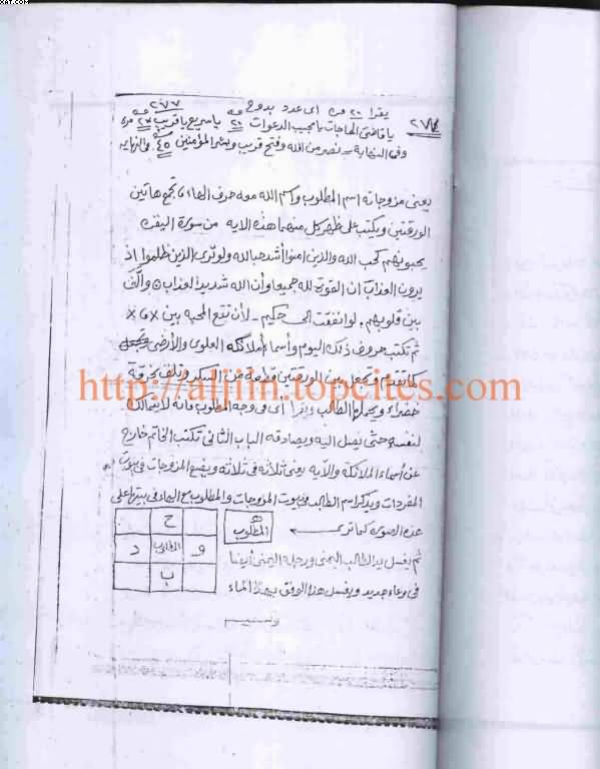 XAT.COM
٢٧٧
٢٧٤ يقرأ ٢٠ مره اى عدد بدوح
يا قاضى الحاجات يا مجيب الدعوات ٢٠ يا سريع يا قريب مره
وفى النهاية نصر من الله وفتح قريب وبشر المؤمنين ٤٥
يعنى مزوجاته اسم المطلوب واسم الله معه حرف الهاء تجمع هاتين
الورقتين ويكتب على ظهر كل منهما هذه الايه من سورة البقرة
يحبونهم كحب الله والذين امنوا أشد حبا لله ولو ترى الذين ظلموا إذ
يرون العذاب ان القوة لله جميعا وأن الله شديد العذاب وألف
بين قلوبهم لو انفقت الى حكيم لأن تقع المحبه بين
ثم تكتب حروف ذلك اليوم وأسماء أملاكه العلوى والأرضى
كما تقدم ويجعل بين الورقتين قطعة من السكر وتلف بخرقة
http://aljiin.topcites.com
خضراء ويحملها الطالب ويقرأ اى فى وجه المطلوب فانه لا يتمالك
لنفسه حتى يصل اليه ويصادقه الباب الثانى تكتب الخاتم خارج
عن أسماء الملائكة والآيه يعنى ثلاثة فى ثلاثة ويضع المزوجات فى بيوت
المفردات ويذكر اسم الطالب فى بيوت المزوجات والمطلوب مع الهاء فى بيتها على
هذه الصورة كما ترى
هـ
المطلوب
ح
د
المطلوب
و
ب
ثم يغسل يد الطالب اليمنى ورجله اليمنى أيضا
فى وعاء جديد ويغسل هذا الوفق بهذا الماء